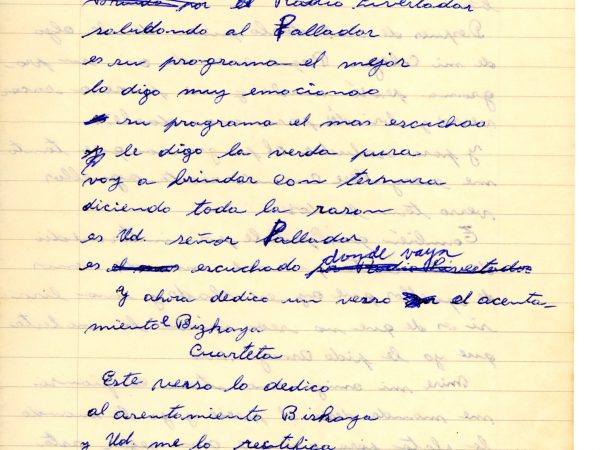 por el Radio Livertador
saludando al Pallador
es su programa el mejor
lo digo muy emocionao
su programa el mas escuchao
y le digo la verda pura
voy a brindar con ternura
diciendo toda la razon
es Ud. señor Pallador
es escuchado donde vaya
Y ahora dedico un verso al acenta-
miento Bizkaya
Cuarteta
Este verso lo dedico
al asentamiento Biskaya
y Ud. me lo reetifica